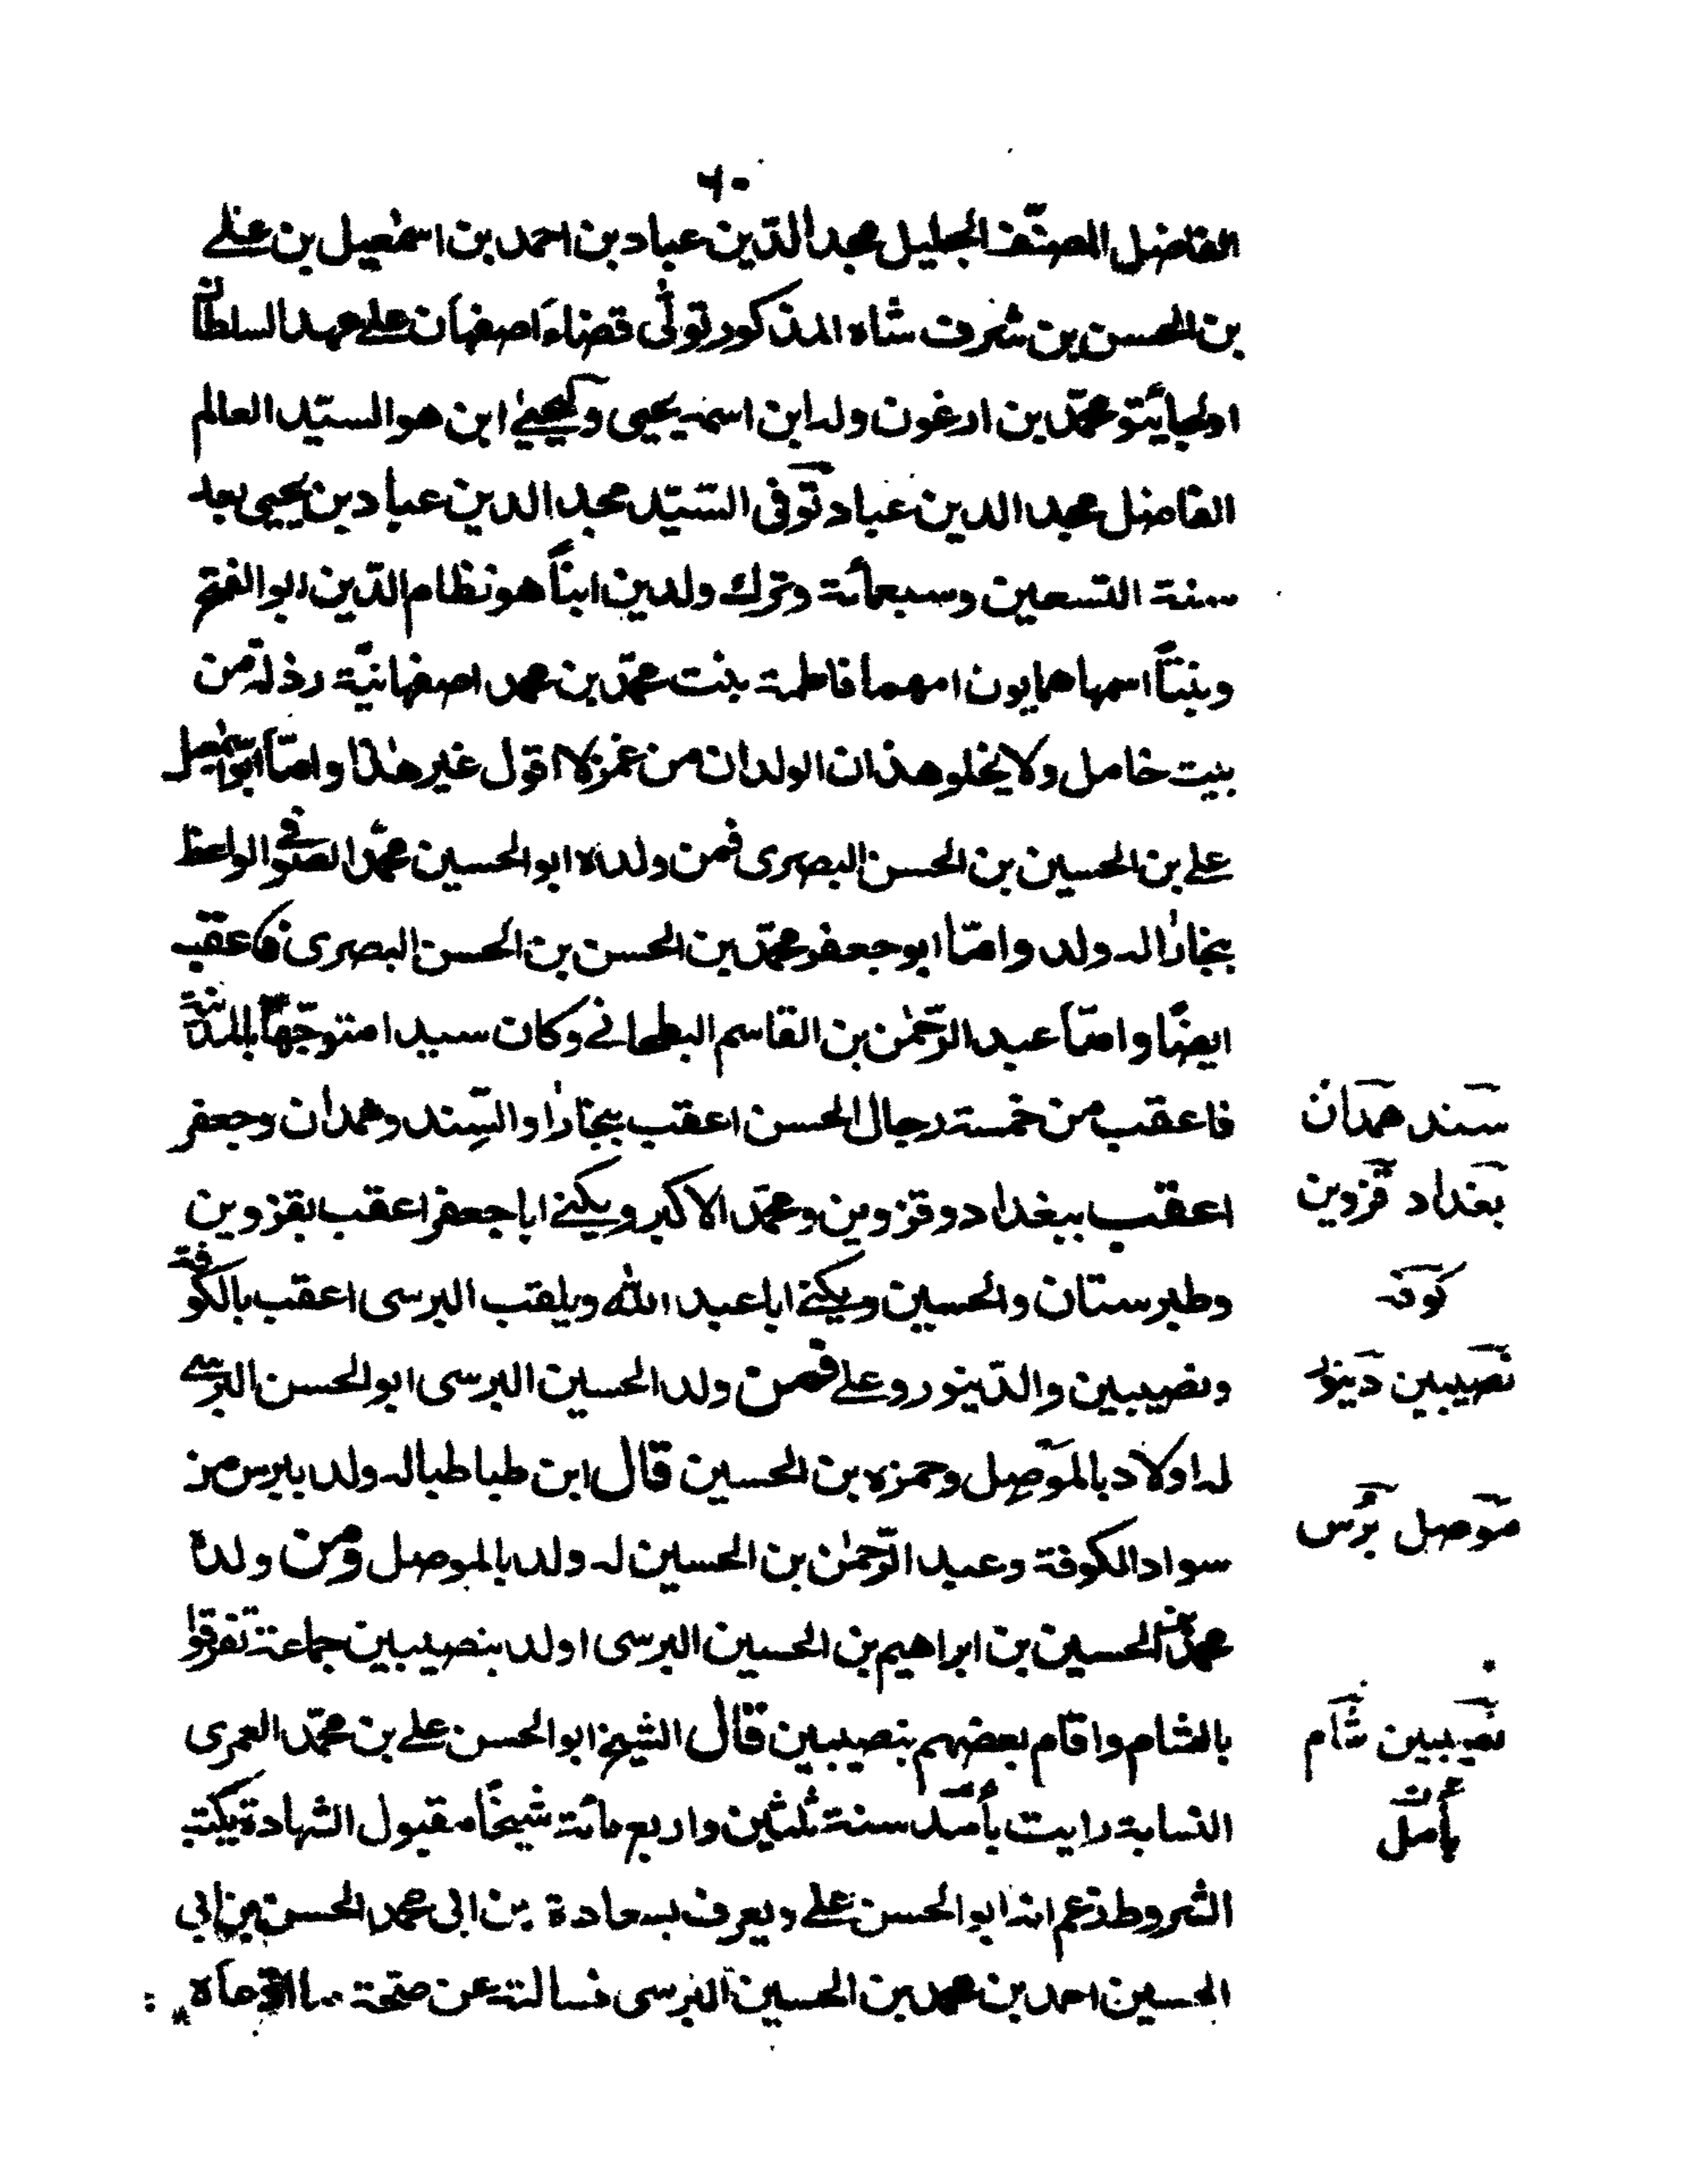 ٦٠
الفاضل المصنّف الجليل مجد الدّين عباد بن احمد بن اسمٰعيل بن علے
بن الحسن بن شرف شاه المذكور تولّى قضاء اصفهان علے عهد السلطان
اولجايتو محمّد بن ارغون وله ابن اسمه يحيى وليحيىٰ ابن هو السيّد العالم
الفاضل مجد الدين عباد توفى السّيّد مجد الدين عباد بن يحيى بعد
سنة التسعين وسبعمأئة وترك ولدين ابناً هو نظام الدّين ابو الفتح
وبنتاً اسمها همايون امهما فاطمة بنت محمّد بن محمد اصفهانيّة رذلة من
بيت خامل ولا يخلو هذان الولدان من غمز لا اقول غير هٰذا وامّا ابو اسمٰعيل
علے بن الحسين بن الحسن البصرى فمن ولده ابو الحسين محمّد الصوفے الواعظ
ببخارٰا له ولد وامّا ابو جعفر محمّد بن الحسن بن الحسن البصرى فاعقب
ايضًا وامّا عبد الرّحمٰن بن القاسم البطحانے وكان سيدا متوجّهاً بالمدينة
فاعقب من خمسة رجال الحسن اعقب ببخارٰا والسّند وهمدان وجعفر
سند همدان
اعقب ببغداد وقزوين ومحمّد الاكبر ويكنے ابا جعفر اعقب بقزوين
بغداد قزوين
وطبرستان والحسين ويكنے ابا عبد الله ويلقب البرسى اعقب بالكوفة
كوفه
ونصيبين والدّينور وعلے فمن ولد الحسين البرسى ابو الحسن البرسے
نصيبين دينور
له اولاد بالموصل وحمزه بن الحسين قال ابن طباطبا له ولد ببرس من
موصل بُرس
سواد الكوفة وعبد الرّحمٰن بن الحسين له ولد بالموصل ومن ولده
محمّد بن الحسين بن ابراهيم بن الحسين البرسى اولد بنصيبين جماعة تفرقوا
بالشام واقام بعضهم بنصيبين قال الشيخ ابو الحسن علے بن محمّد العمرى
نصيبين شام
النسابة رايت بأمد سنة ثلثين واربعمائة شيخًا مقبول الشهادة يكتب
بأمل
الشروط زعم انه ابو الحسن علے ويعرف بسعادة بن ابى محمد الحسن بن ابي
الحسين احمد بن محمد بن الحسين البرسى فسالته عن صحّة ما ادّعاه